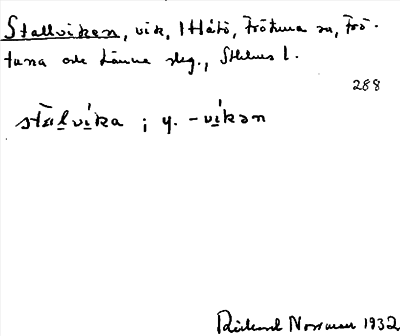 Stallviken, vik, 1 Håtö, Frötuna sn, Frö-
tuna och Länna skg., Sthlms l.
288
stàlvíka ; y. -víkən
Rickard Norrman 1932